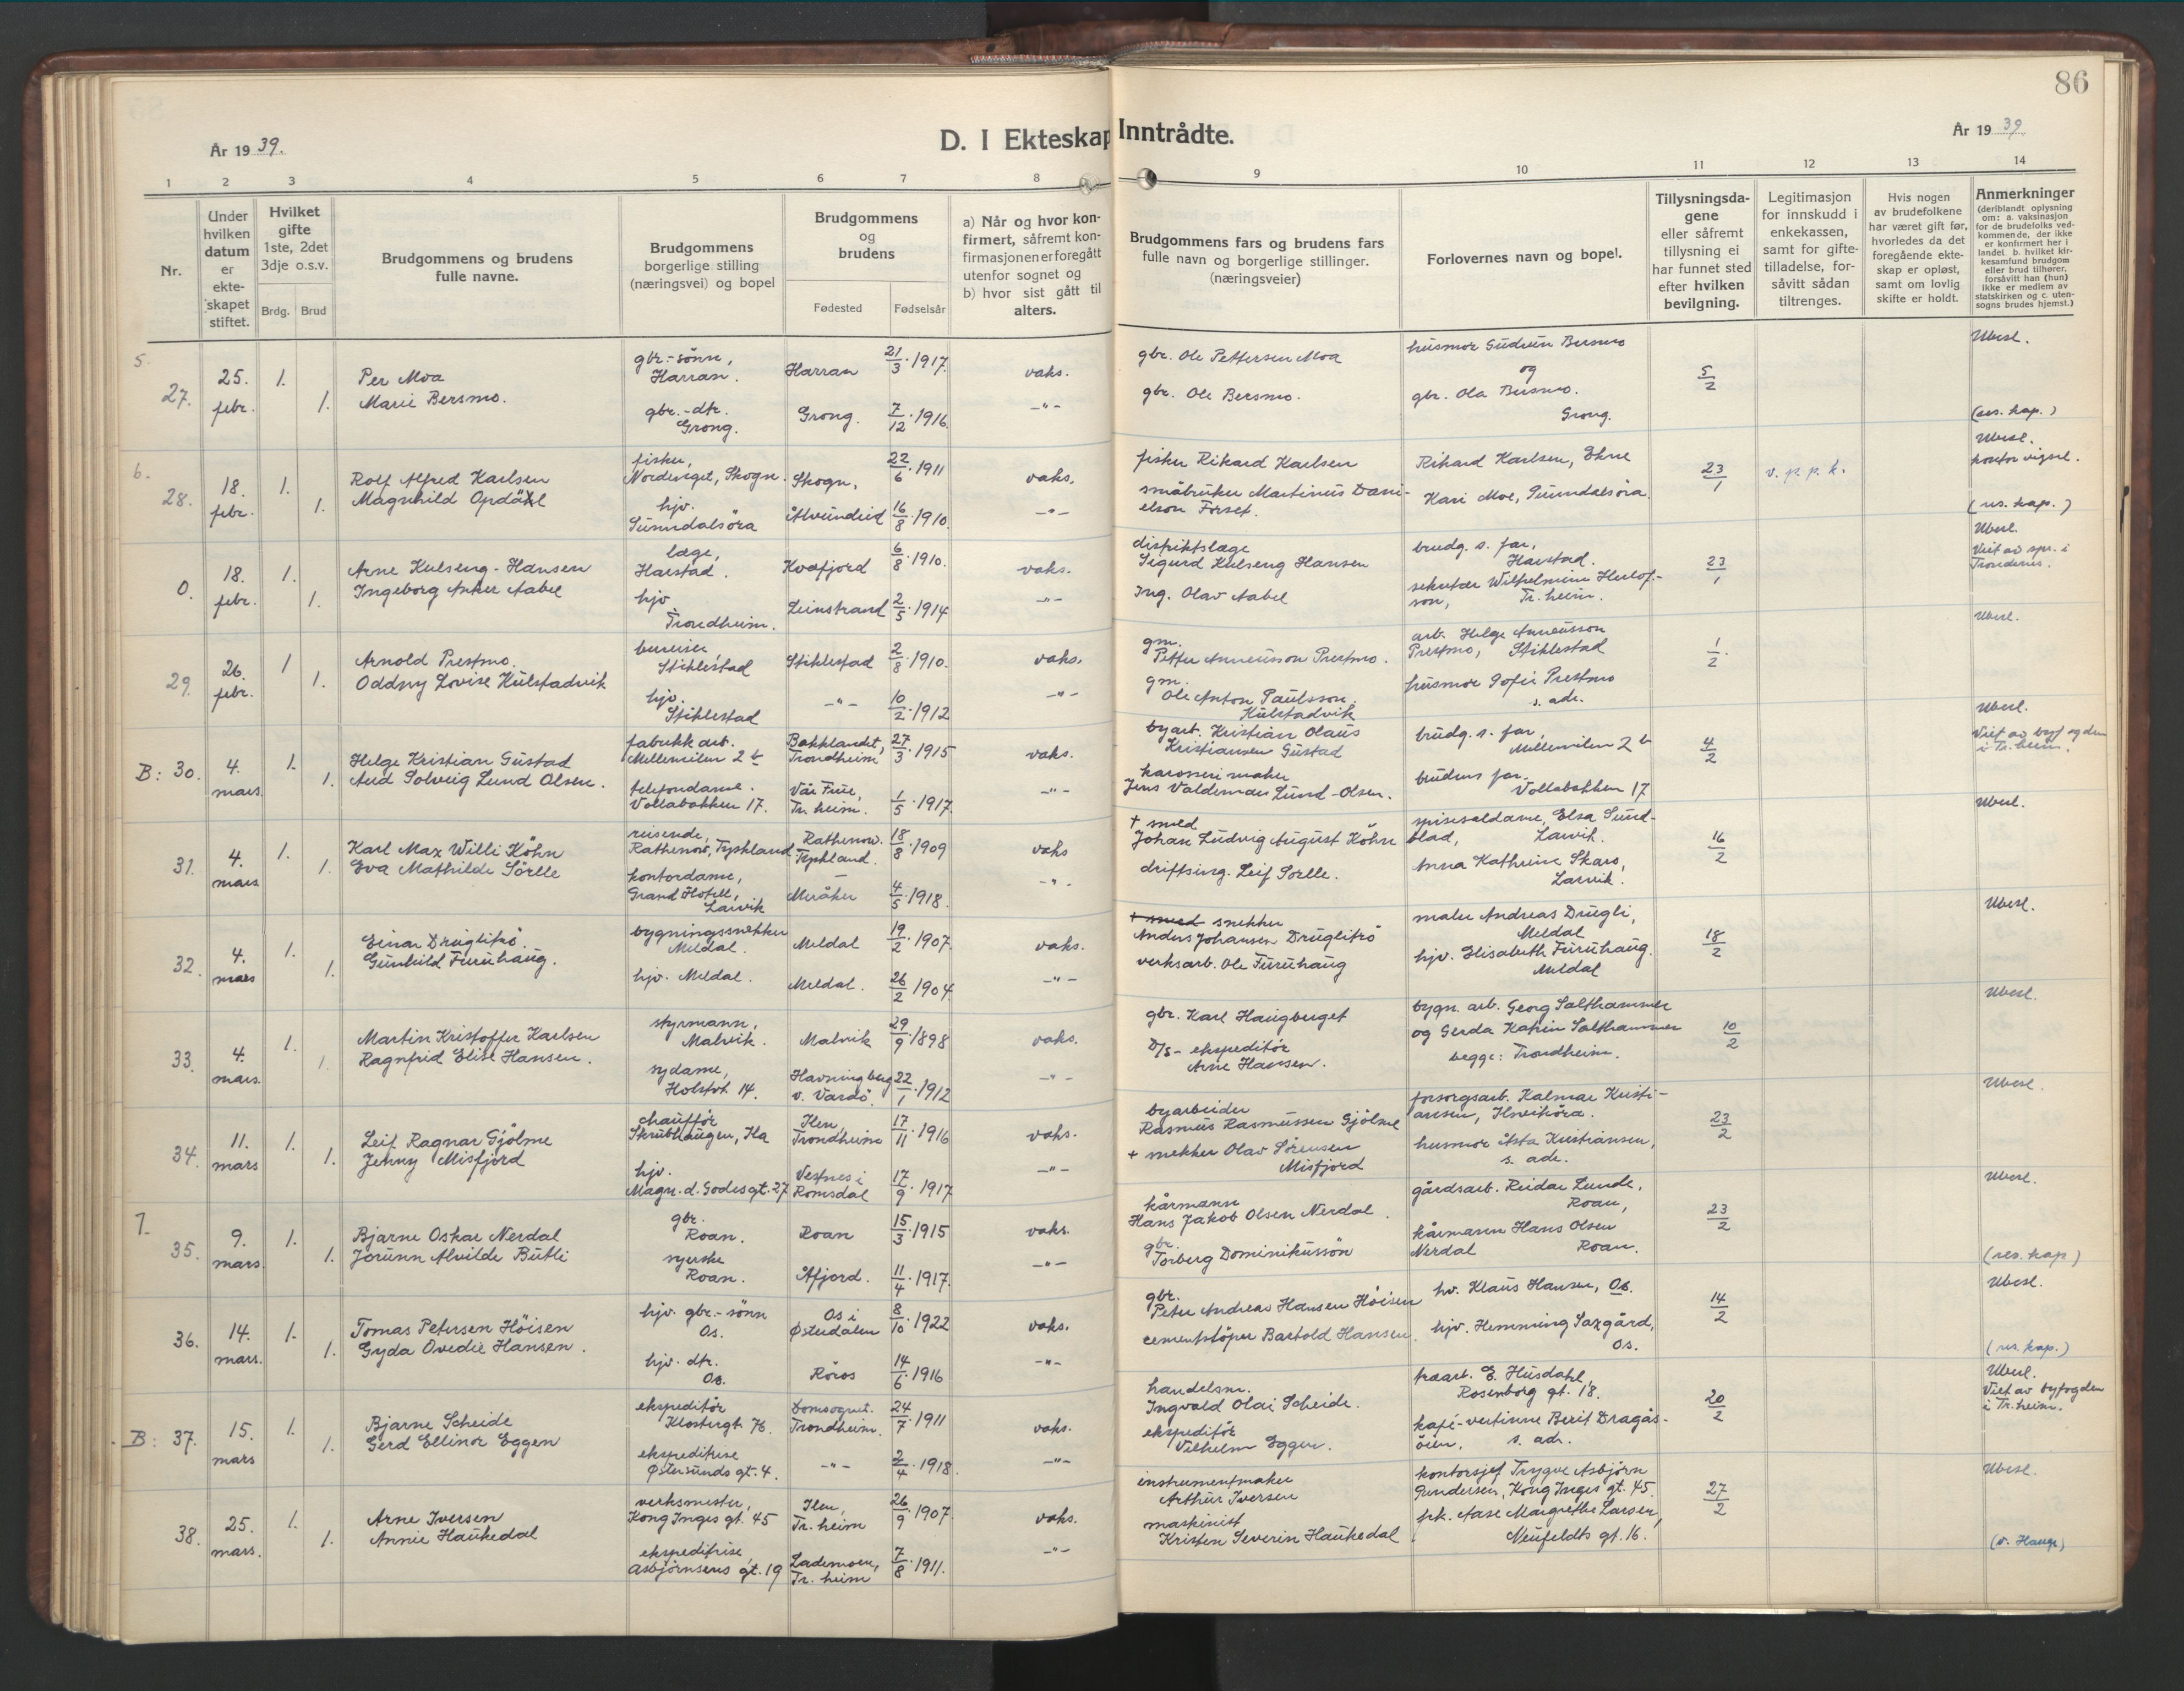 86
År 19 39.
D. I Ekteskap Inntrådte.
År 19 39
1 2 3 4 5 6 7 8 9 10 11 12 13 14
Nr.
Under
hvilken
datum
er
ekte-
skapet
stiftet.
Hvilket
gifte
1ste, 2det
3dje o.s.v.
Brdg. Brud
Brudgommens og brudens
fulle navne.
Brudgommens
borgerlige stilling
(næringsvei) og bopel
Brudgommens
og
brudens
Fødested Fødselsår
a) Når og hvor kon-
firmert, såfremt kon-
firmasjonen er foregått
utenfor sognet og
b) hvor sist gått til
alters.
Brudgommens fars og brudens fars
fulle navn og borgerlige stillinger.
(næringsveier)
Forlovernes navn og bopel.
Tillysningsda-
gene
eller såfremt
tillysning ei
har funnet sted
efter hvilken
bevilgning.
Legitimasjon
for innskudd i
enkekassen,
samt for gifte-
tilladelse, for-
såvitt sådan
tiltrenges.
Hvis nogen
av brudefolkene
har været gift før,
hvorledes da det
foregående ekte-
skap er opløst,
samt om lovlig
skifte er holdt.
Anmerkninger
(deriblandt oplysning
om: a. vaksinasjon
for de brudefolks ved-
kommende, der ikke
er konfirmert her i
landet b. hvilket kir-
kesamfund brudgom
eller brud tilhører,
forsåvitt han (hun)
ikke er medlem av
statskirken og c. uten-
sogns brudes hjemst.)
5.
27. 25. febr. 1. 1.
Per Moa
Marie Bersmo.
gbr.-sönn,
Harran.
gbr.-dtr.
Grong.
Harran 21/3 1917.
Grong. 7/12 1916.
vaks.
-"-
gbr. Ole Pettersen Moa
gbr. Ole Bersmo.
husmor Gudrun Bersmo
og
gbr. Ola Bersmo.
Grong.
5/2
Ubesl.
(res. kap.)
6.
28. 18. febr. 1. 1.
Rolf Alfred Karlsen
Magnhild Opdöl
fisker,
Skogn.
hjv.
Sunndalsöra
Skogn. 22/6 1911
Ålvundeid 16/8 1910.
vaks.
-"-
fisker Rikard Karlsen
småbruker Martinus Dani-
elson Forset.
Rikard Karlsen, Ekne
Kari Moe, Sunndalsöra.
23/1
v. p. p. k.
Ubesl.
kontor vigsel.
(res. kap.)
0. 18. febr. 1. 1.
Arne Kulseng-Hansen
Ingeborg Anker Aabel
læge,
Harstad.
hjv.
Trondheim.
Kvæfjord 6/8 1910.
Leinstrand 2/5 1914
vaks.
-"-
distriktslæge
Sigurd Kulseng Hansen
Ing. Olav Aabel
brudg. s. far,
Harstad.
sekretær Wilhelmine Herlof-
son, Tr.heim.
23/1
Ubesl.
Viet av spr. i
Trondenes.
29. 26. febr. 1 1.
Arnold Prestmo.
Oddny Lovise Kulstadvik
bureiser,
Stiklestad
hjv.
Stiklestad
Stiklestad 2/8 1910.
-"- 10/2 1912
vaks.
-"-
gm.
Petter Anneusson Prestmo.
gm.
Ole Anton Paulsson
Kulstadvik
arb. Helge Anneusson
Prestmo, Stiklestad
husmor Sofie Prestmo
s. adr.
1/2.
Ubesl.
B: 30. 4. mars. 1. 1.
Helge Kristian Gustad
Aud Solveig Lund Olsen.
fabrikk arb.
Mellemilen 2 b
telefondame.
Vollabakken 17.
Bakklandet,
Trondheim 27/3 1915
Vår Frue,
Tr. heim. 1/5 1917.
vaks.
-"-
byarb. Kristian Olaus
Kristiansen Gustad
karosserimaker
Jens Valdemar Lund-Olsen.
brudg. s. far,
Mellemilen 2 b
brudens far.
Vollabakken 17
4/2
Ubesl.
Viet av byfogden
i Tr.heim.
31. 4. mars 1. 1.
Karl Max Willi Köhn
Eva Mathilde Sörlle
reisende,
Rathenow, Tyskland
kontordame,
Grand Hotell,
Larvik
Rathenow.
Tyskland. 18/8 1909
Meråker 4/5 1918.
vaks
-"-
+ smed
Johan Ludvig August Köhn
driftsing. Leif Sörlle.
spisesaldame, Elsa Sund-
blad, Larvik.
Anna Kathrine Skaro,
Larvik.
16/2
Ubesl.
32. 4. mars 1. 1.
Einar Druglitrö.
Gunhild Furuhaug.
bygningssnekker
Meldal.
hjv. Meldal.
Meldal 19/2 1907.
Meldal. 26/2 1904.
vaks.
-"-
+ smed snekker
Anders Johansen Druglitrö
verksarb. Ole Furuhaug
maler Andreas Drugli,
Meldal
hjv. Elisabeth Furuhaug.
Meldal
18/2
Ubesl.
33. 4. mars. 1. 1.
Martin Kristoffer Karlsen
Ragnfrid Elise Hansen.
styrmann,
Malvik.
sydame,
Holstvt. 14.
Malvik 29/9 1898
Havningberg
v. Vardö. 22/1 1912
vaks.
-"-
gbr. Karl Haugberget
D/S-ekspeditör
Arne Hansen.
bygn. arb. Georg Salthammer
og Gerda Katrin Salthammer
begge: Trondheim.
10/2
Ubesl.
34. 11. mars 1. 1.
Leif Ragnar Gjölme
Jenny Misfjord
chaufför
Skrubhaugen, Ila
hjv.
Magn. d. Godesgt. 27
Ilen,
Trondheim 17/11 1916
Vestnes i
Romsdal 17/9 1917
vaks.
-"-
byarbeider
Rasmus Rasmussen Gjölme
+ snekker Olav Sörensen
Misfjord
forsorgsarb. Kalmar Kristi-
ansen, Ilsviköra.
husmor Åsta Kristiansen,
s. adr.
23/2
Ubesl.
7.
35. 9. mars. 1. 1.
Bjarne Oskar Nerdal
Jorunn Alvilde Butli
gbr.
Roan.
syerske
Roan.
Roan 15/3 1915
Åfjord. 11/4 1917.
vaks.
-"-
kårmann
Hans Jakob Olsen Nerdal.
gbr.
Torberg Dominikussön
gårdsarb. Reidar Lunde,
Roan,
kårmann Hans Olsen
Nerdal Roan.
23/2
Ubesl.
(res. kap)
36. 14. mars. 1. 1.
Tomas Petersen Höisen
Gyda Ovedie Hansen.
hjv. gbr.-sönn
Os.
hjv. dtr.
Os.
Os i
Østerdalen 8/10 1922
Röros 14/6 1916
vaks.
-"-
gbr.
Peter Andreas Hansen Höisen
cementstöper Bartold Hansen.
hv. Klaus Hansen, Os.
hjv. Hemming Saxgård,
Os.
14/2
Ubesl.
(res. kap.)
B: 37. 15. mars 1. 1.
Bjarne Scheide
Gerd Ellinor Eggen
ekspeditör
Klostergt. 76.
ekspeditrise
Østersunds gt. 4.
Domsognet.
Trondheim. 24/7 1911
-"- 2/4 1918.
vaks.
-"-
handelsm.
Ingvald Olai Scheide.
ekspeditör
Vilhelm Eggen.
trearb. E. Husdahl,
Rosenborg gt. 18.
kafé-vertinne Berit Dragås-
öien, s. adr.
20/2
Ubesl.
Viet av byfogden
i Tr.heim.
38. 25. mars. 1. 1.
Arne Iversen
Annie Haukedal
verksmester,
Kong Inges gt. 45
ekspeditrise,
Asbjörnsens gt. 19
Ilen,
Tr.heim 26/9 1907.
Lademoen,
Tr. heim 7/8 1911.
vaks.
-"-
instrumentmaker
Arthur Iversen
maskinist
Kristen Severin Haukedal
kontorsjef Trygve Asbjörn
Gundersen, Kong Inges gt. 45.
frk. Aase Margrethe Larsen,
Neufeldts gt. 16.
27/2
Ubesl.
(v. Hauge)